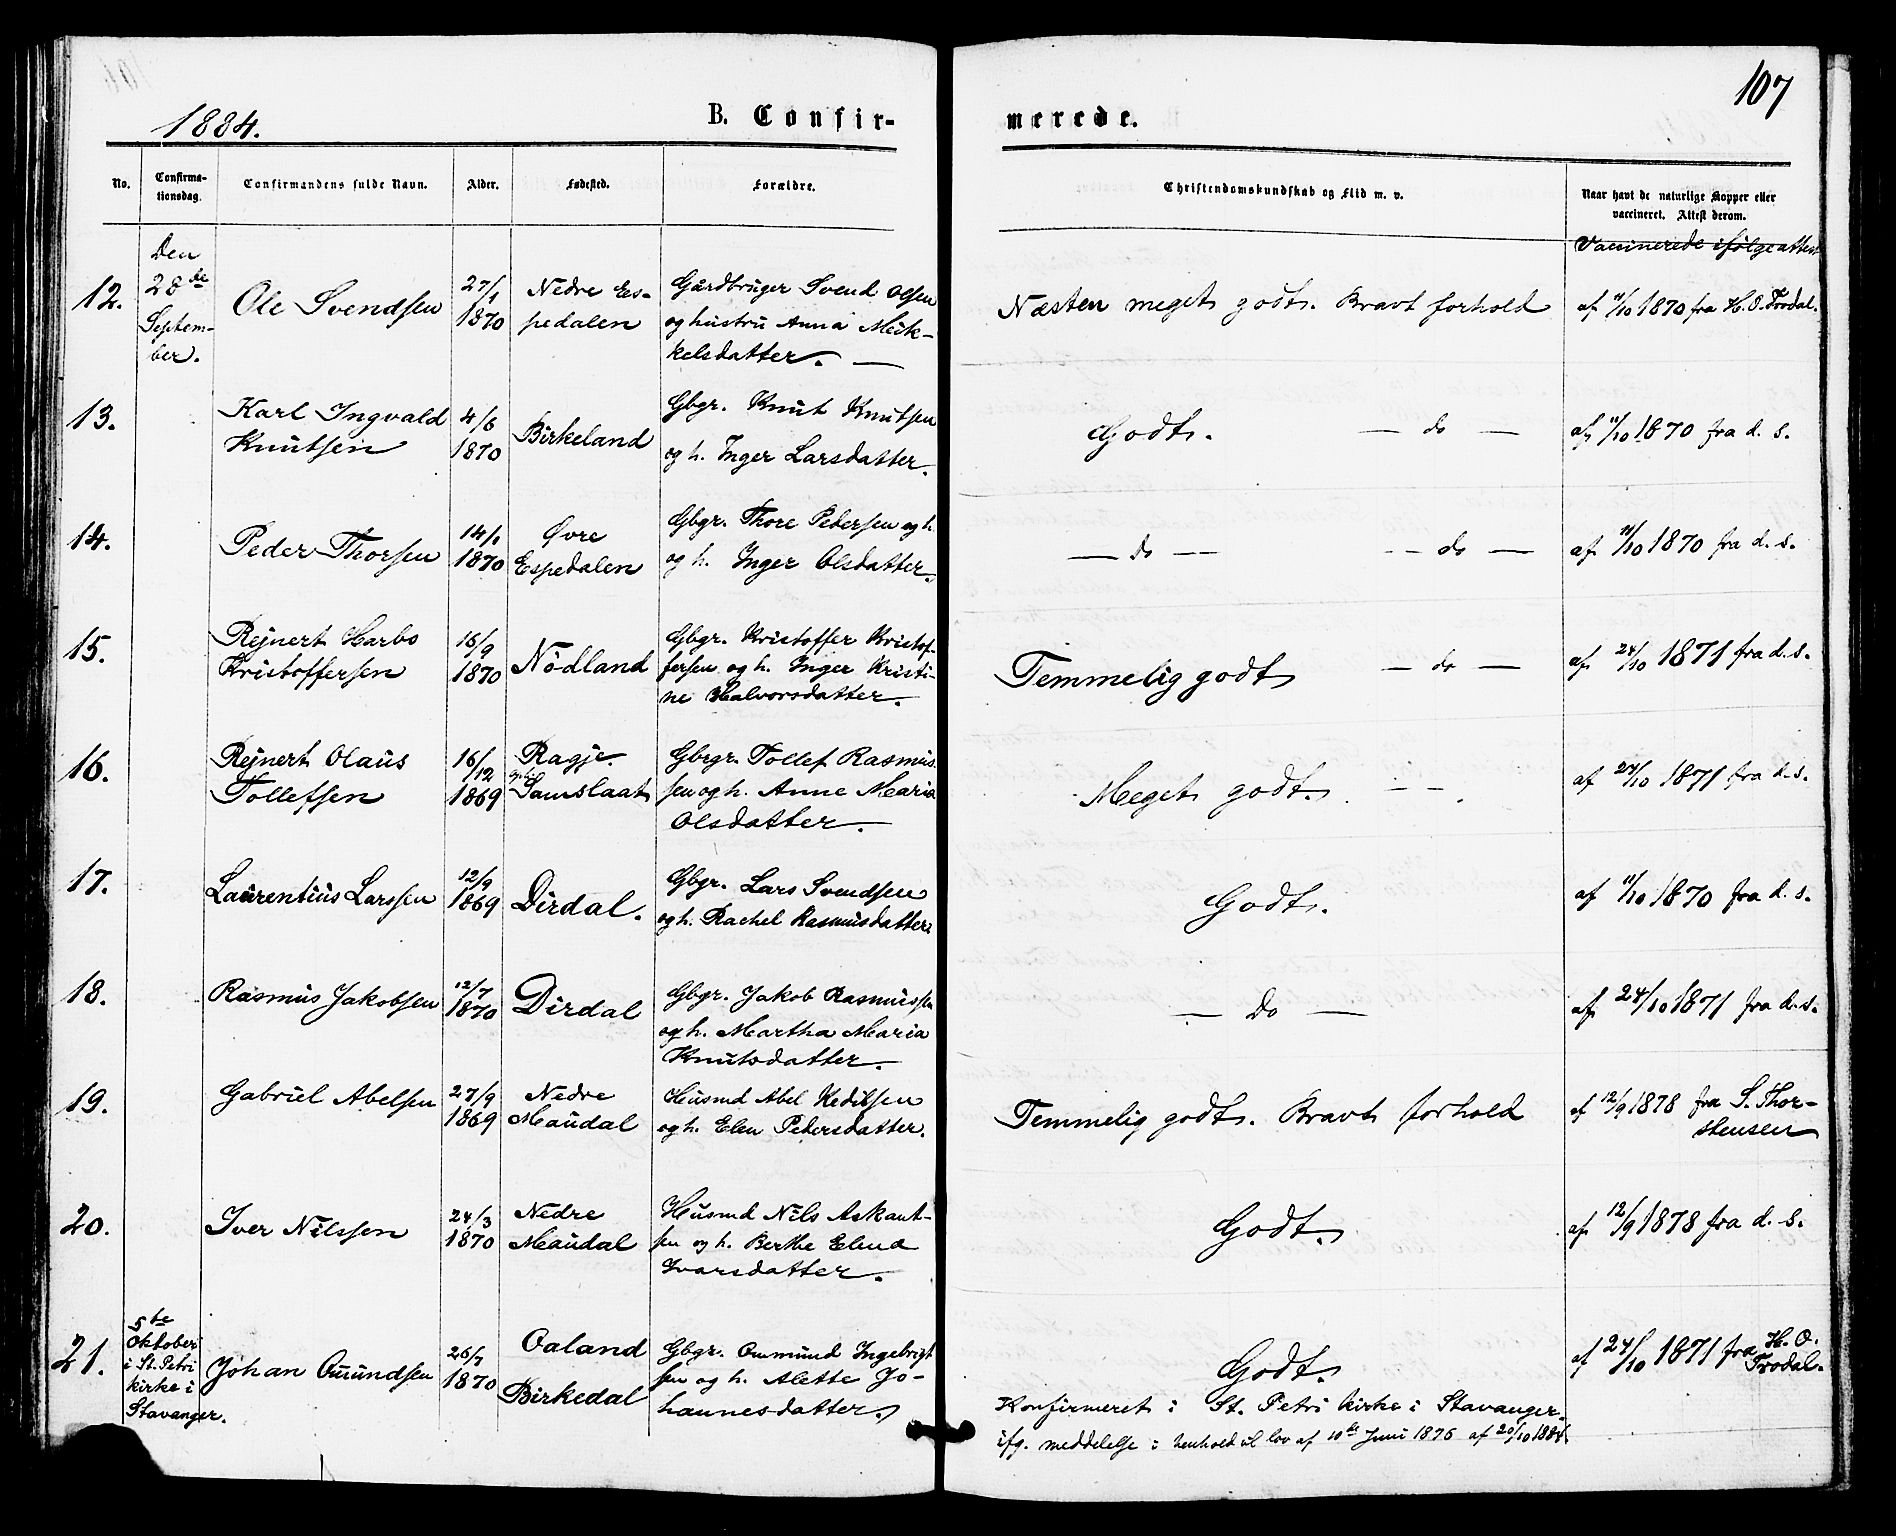 1884.
B. Confir-
merede.
107
No.
Confirma-
tionsdag.
Confirmandens fulde Navn.
Alder.
Fødested.
Forældre.
Christendomskundskab og Flid m. v.
Naar havt de naturlige Kopper eller
vaccineret. Attest derom.
Vaccinerede ifølge attest
12.
Den
28de
Septem-
ber.
Ole Svendsen
27/1
1870
Nedre Es-
pedalen
Gårdbruger Svend Olsen
og hustru Anna Mik-
kelsdatter.
Næsten meget godt. Bravt forhold
af 11/10 1870 fra H. O. Frodal.
13.
Karl Ingvald
Knutsen
4/6
1870
Birkeland
Gbgr. Knut Knutsen
og h. Inger Larsdatter.
Godt. — do —
af 11/10 1870 fra d. s.
14.
Peder Thorsen
1870
Øvre
Espedalen
Gbgr. Thore Pedersen og h.
og h. Inger Olsdatter.
— do — — do —
af 11/10 1870 fra d. s.
15.
Rejnert Harbo
Kristoffersen
16/9
1870
Nödland
Gbgr. Kristoffer Kristof-
fersen og h. Inger Kristi-
ne Halvorsdatter.
Temmelig godt — do —
af 24/10 1871 fra d. s.
16.
Rejnert Olaus
Tollefsen
16/12
1869
Ragje
Samslaat
Gbrgr. Tollef Rasmus-
sen og h. Anne Maria
Olsdatter.
Meget godt. — —
af 24/10 1871 fra d. s.
17.
Laurentius Larssen
12/9
1869
Dirdal.
Gbgr. Lars Svendsen
og h. Rachel Rasmusdatter.
Godt.
af 11/10 1870 fra d. s.
18.
Rasmus Jakobsen
12/7
1870
Dirdal
Gbgr. Jakob Rasmussen
og h. Martha Maria
Knutsdatter.
— Do —
af 24/10 1871 fra d. s.
19.
Gabriel Abelsen
27/9
1869
Nedre
Maudal
Husmd Abel Kedilsen
og h. Elen Pedersdatter.
Temmelig godt. Bravt forhold
af 12/9 1878 fra S. Thor-
stensen
20.
Iver Nilssen
24/3
1870
Nedre
Maudal
Husmd Nils Askaut-
sen og h. Berthe Elena
Ivarsdatter.
Godt.
af 12/9 1878 fra d. s.
21.
5te
Oktober
i St. Petri
kirke i
Stavanger.
Johan Omundsen
26/7
1870
Oaland
Birkedal
Gbgr. Ommund Ingebrigt-
sen og h. Alette Jo-
hannesdatter.
Godt.
af 24/10 1871 fra H. O.
Frodal.
Konfirmeret i St. Petri kirke i Stavanger.
ifg. meddelelse i henhold til lov af 10de Juni 1876 af 20/10 1884